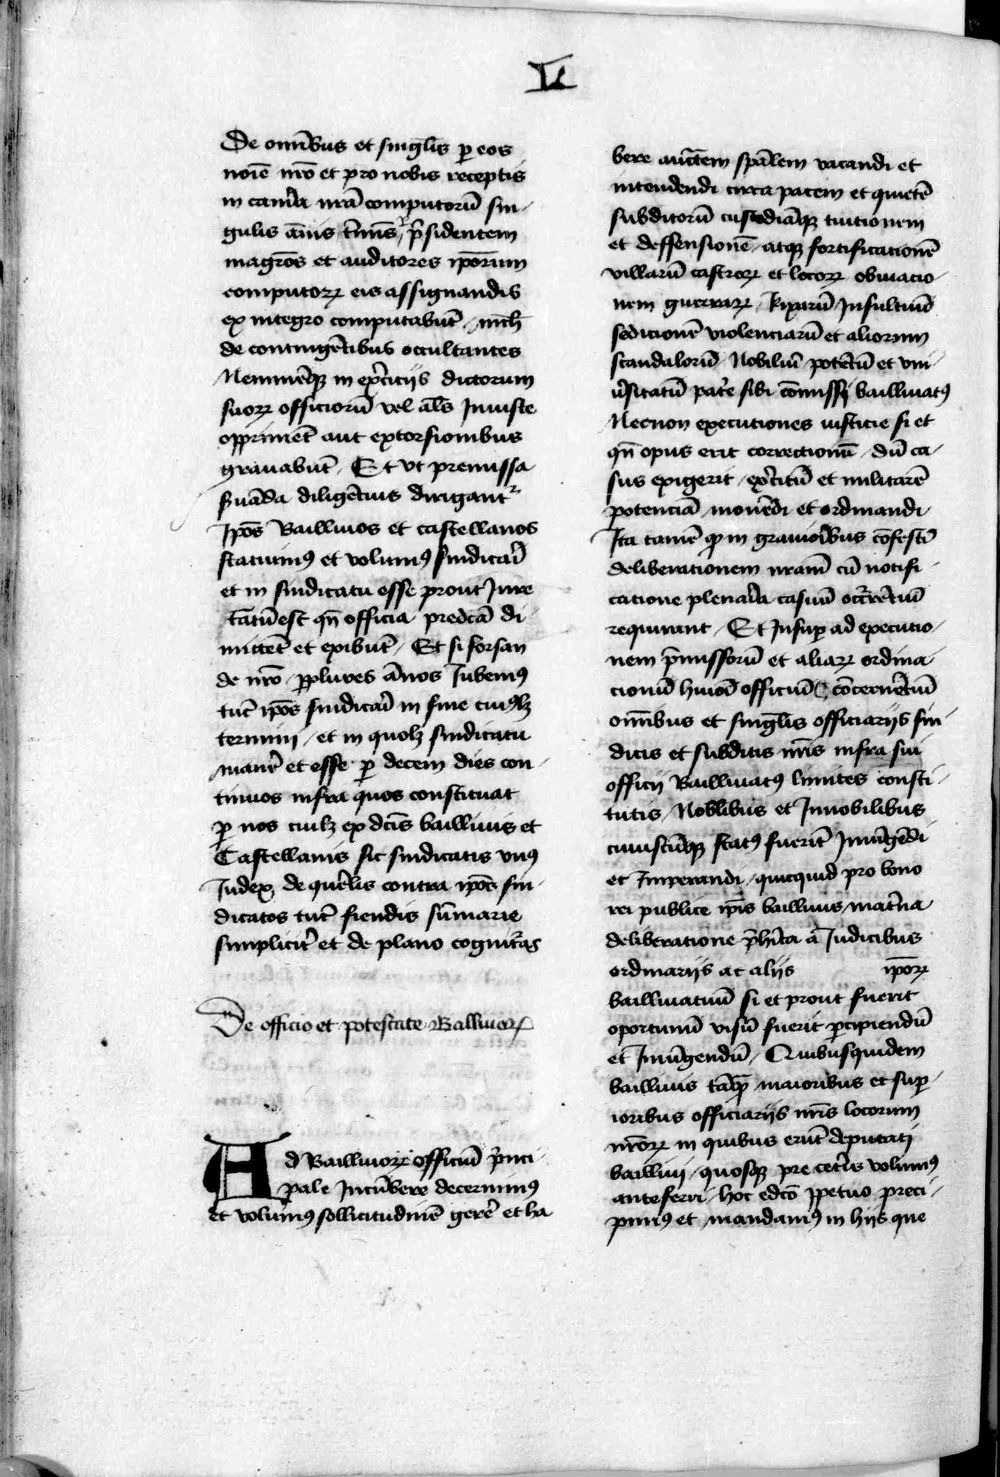 De om̄ibus et singl̄is p̱ eos
noīe nr̄o et pro nobis receptis
in camͣa nr̄a computorū sin-
gulis ānis t̄mīs p̄sidentem
magr̄os et auditores ip̄orum
computoꝝ eis assignandis
ex integro computabūt / nich̄
de contingētibus occultantes
Neminēqꝫ in ex̄citiis dictorum
suoꝝ officiorū vel al̄s Iniuste
opprimēt aut extorsionibus
grauabūt / Et vt premissa
ẜuāda diligētius dirigantͬ
Ip̄os Bailliuos et castellanos
statuimꝰ et volumꝰ sindicar̄i
et in sindicatu esse prout Iure
cautū est qn̄ officia predcā di-
mittēt et exibūt / Et si forsan
de nr̄o ꝑplures ānos Iubemꝰ
tūc ip̄os sindicar̄i in fine cuiꝰlꝫ
termini / et in quolꝫ sindicatu
manēr et esse ꝑ decem dies con-
tinuos infra quos constituat
ꝑ nos cuilꝫ ex dc̄is bailliuis et
Castellanis sic sindicatis vnꝰ
Iudex de querl̄is contra ip̄os sin-
dicatos tūc fiendis sūmarie
simplicit̄ et de plano cognitᷣas
De officio et potestate Balliuoꝝ
Ad Bailliuoꝝ officiū p̄nci-
pale Incūbere decernimꝰ
et volumꝰ sollicitudinē gerēr et ha
bere auctēm spāl̄em vacandi et
intendendi circa pacem et quietē
subditorū custodiāqꝫ tuitionem
et deffensionē / atqꝫ fortificationē
villarū castroꝝ et locoꝝ obuiatio-
nem guerraꝝ / Rixarū Insultuū
seditionē violenciarū et aliorum
scandalorū Nobiliū potētū et vni-
v̄sitatū patr̄e sibi cōmissi bailliuatꝰ
Necnon executiones iusticie si et
qn̄ opus erit correctionū / dū ca-
sus exigerit / ex̄citū et militarē
potenciā mouēdi et ordinandi
Ita tamē ꝙ in grauior̄ibus cōfestī
deliberationem nr̄am cū notifi-
catione plenar̄ia casuū occ̄rētiū
requirant / Et Insuꝑ ad executio-
nem p̄missorū et aliaꝝ ordina-
cionū hmōi officiū cōcernētiū
om̄ibus et singl̄is officiariis sin-
dicis et subditis nr̄is infra sui
officij Bailliuatꝰ limites consti-
tutis / Noblibus et Innobilibus
cuiuscūqꝫ statꝰ fuerīt Iniūgēdi
et Imperandi / quicquid pro bono
rei publice ip̄is bailliuis matͬua
deliberatione p̄hīta a Iudicibus
ordinariis ac aliis ip̄oꝝ
bailliuatuū si et prout fuerit
oportunū visū fuerit p̱cipiendū
et Iniūgendū / Quibusquidem
bailliuis tāq̄ꝫ maioribus et suꝑ-
ioribus officiariis nr̄is locorum
nr̄oꝝ in quibus erūt deputati
bailliui / quosqꝫ pre cetͬis volumꝰ
anteferri / hoc edc̄o ꝑpetuo preci-
pimꝰ et mandamꝰ in hiis que